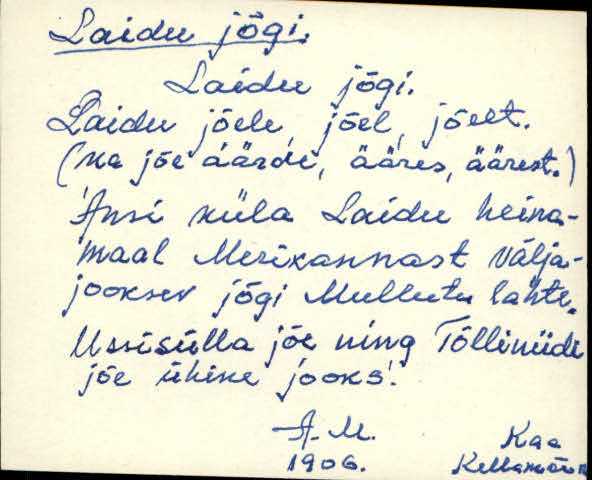 Laidu jõgi.
Laidu jõgi.
Laidu jõele, jõel, jõelt.
(ka jõe äärde, ääres, äärest.)
Ansi küla Laidu heina-
maal Merikannast välja-
jooksev jõgi Mullutu lahte.
Ussisilla jõe ning Tõlliniidi
jõe ühine jooks.
A. M. Kaa
1906.